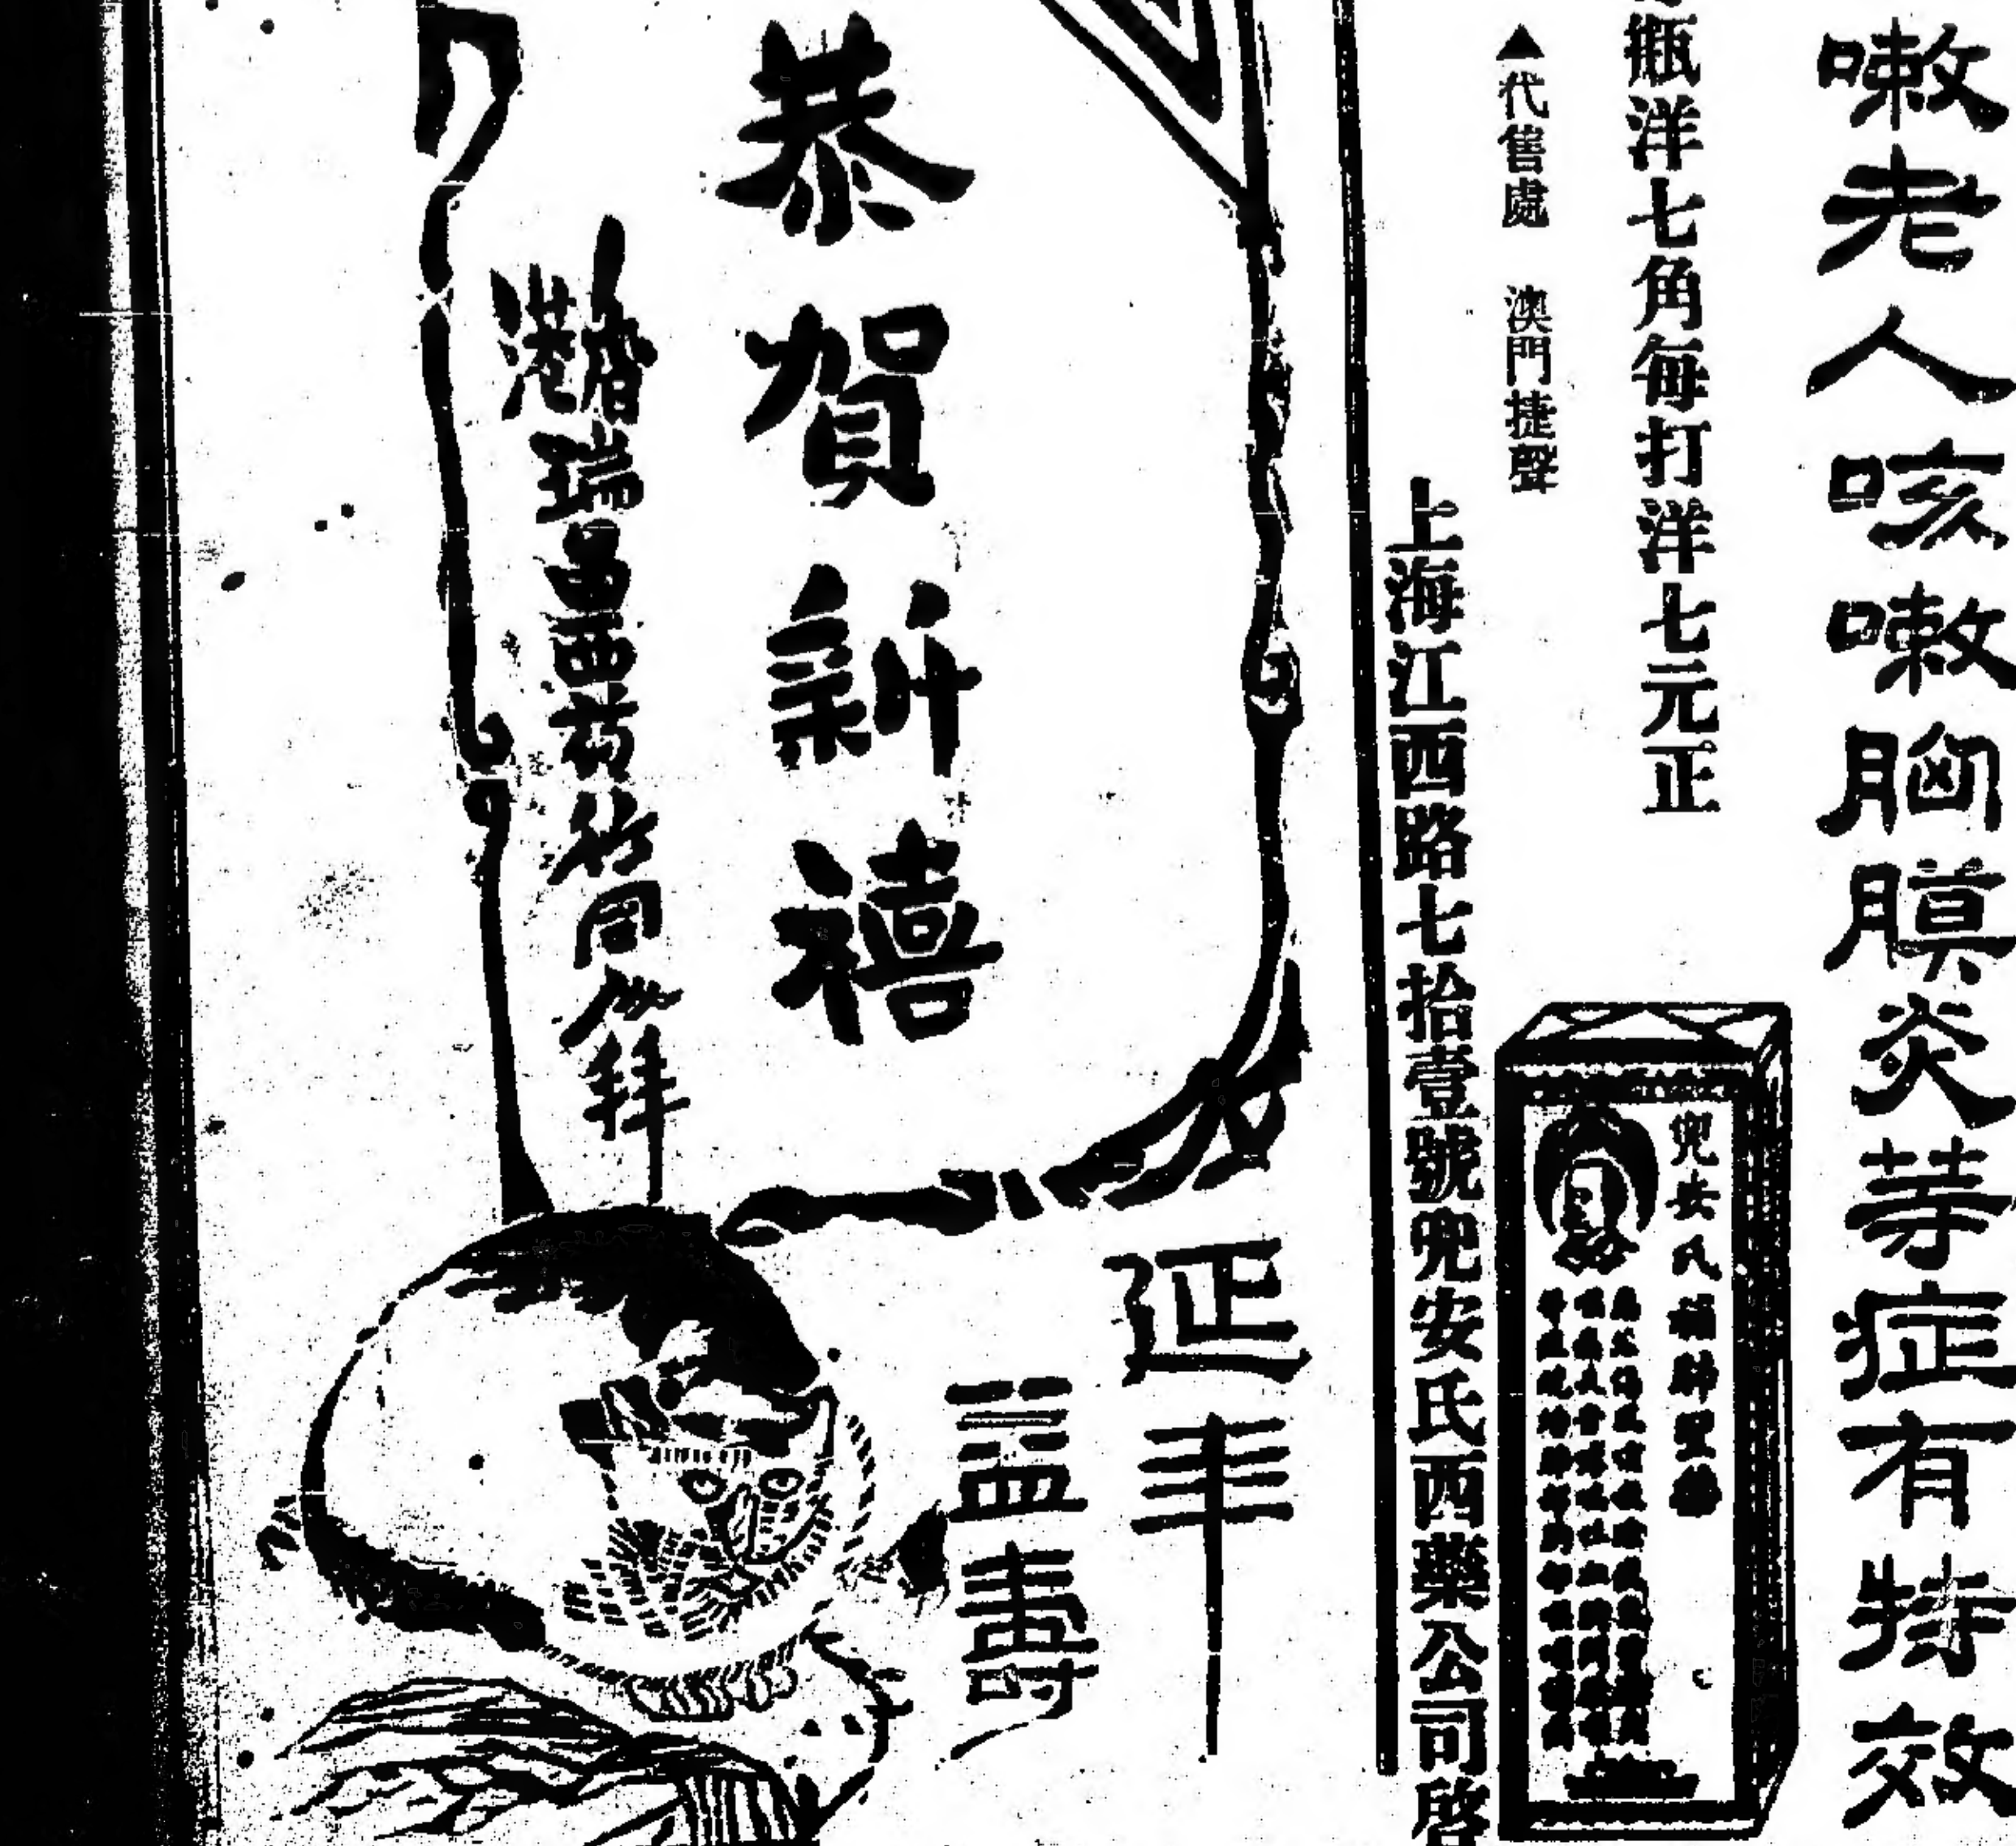 嗽老人咳嗽胸膜炎等症有特效
瓶洋七角每打洋七元正
▲代售處　澳門捷聲
上海江西路七拾壹號兜安氏西藥公司啓
兜安氏補肺聖藥
恭賀新禧
香港瑞昌西药行同人拜
延年
益壽